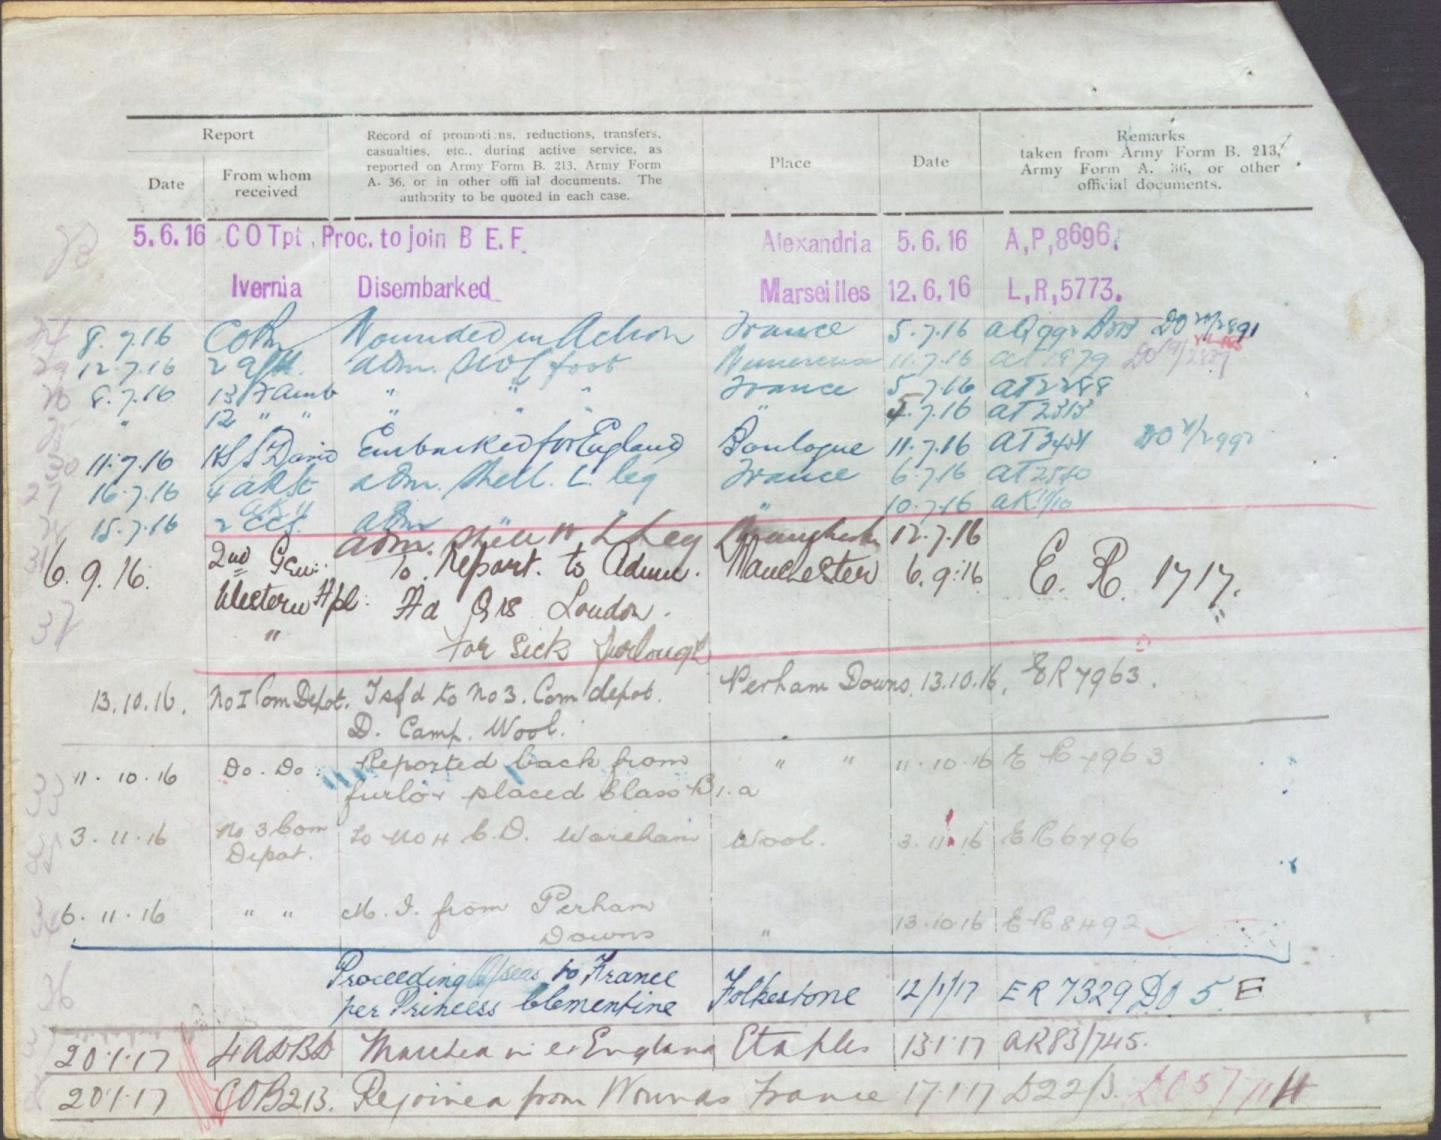 Report
Record of promotions, reductions, transfers,
casualties, etc., during active service, as
reported on Army Form B. 213, Army Form
A. 36, or in other official documents. The
authority to be quoted in each case.
Place
Date
Remarks
taken from Army Form B. 213,
Army Form A. 36, or other
official documents.
Date
From whom
received
5.6.16 C O Tpt. Proc. to join B E.F. Alexandria 5.6.16 A,P,8696.
Ivernia Disembarked Marseilles 12.6.16 L,R,5773.
8.7.16 Wounded in Action France 5.7.16
12.7.16 adm. foot 11.7.16
8.7.16 13 F amb " " " France 5.7.16 AT2288
" 12 " " " " " " 5.7.16 AT2313
11.7.16 HS St David Embarked for England Boulogne 11.7.16
16.7.16 adm. Shell. L. leg France 6.7.16 AT2540
15.7.16 2 CCS adm " 10.7.16
adm. L Leg 12.7.16
6.9.16. 2nd Gen. To Report. to Admn. Manchester 6.9.16 E. R. 1717.
Western Hpl. Hd Qrs London.
" For sick furlough
13.10.16. No I Com Depot. Tsfd to No 3. Com depot. Perham Downs 13.10.16. ER 7963.
D. Camp. Wool.
11.10.16 Do. Do. Reported back from " " 11.10.16
furlo placed Class B1.a
3.11.16 No 3 Com To No 4 C.D. Wareham Wool. 3.11.16 ER6796
Depot.
6.11.16 " " M. I. from Perham " 13.10.16 ER8492
Downs
Proceeding O/seas to France
per Princess Clementine Folkestone 12/1/17 ER 7329 DO 5 E
20.1.17 4ADBD Marched in ex England Etaples 13.1.17 AR83/745.
20.1.17 COB213. Rejoined from Wounds France 17.1.17 D22/3.